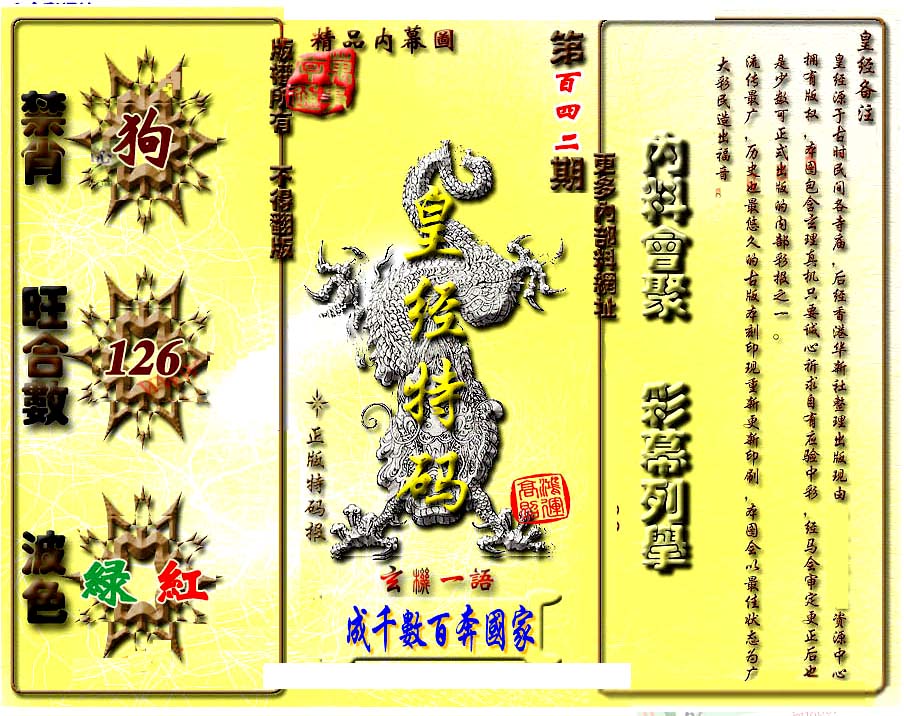 皇经备注
皇经源于古时民间各寺庙，后经香港华新社整理出版现由
资源中心
拥有版权，本图包含玄理真机只要诚心祈求自有应验中彩，经马会审定更正后也
是少数可正式出版的内部彩报之一。
流传最广，历史也最悠久的古版本刻印现重新更新印刷，本图会以最佳状态为广
大彩民造出福音。
內料會聚
彩幕列舉
更多內部料網址
第百四二期
精品內幕圖
版權所有 不得翻版
皇经特码
正版特码报
鴻運高照
玄機一語
成千數百奔國家
禁肖
狗
旺合數
126
波色
綠 紅